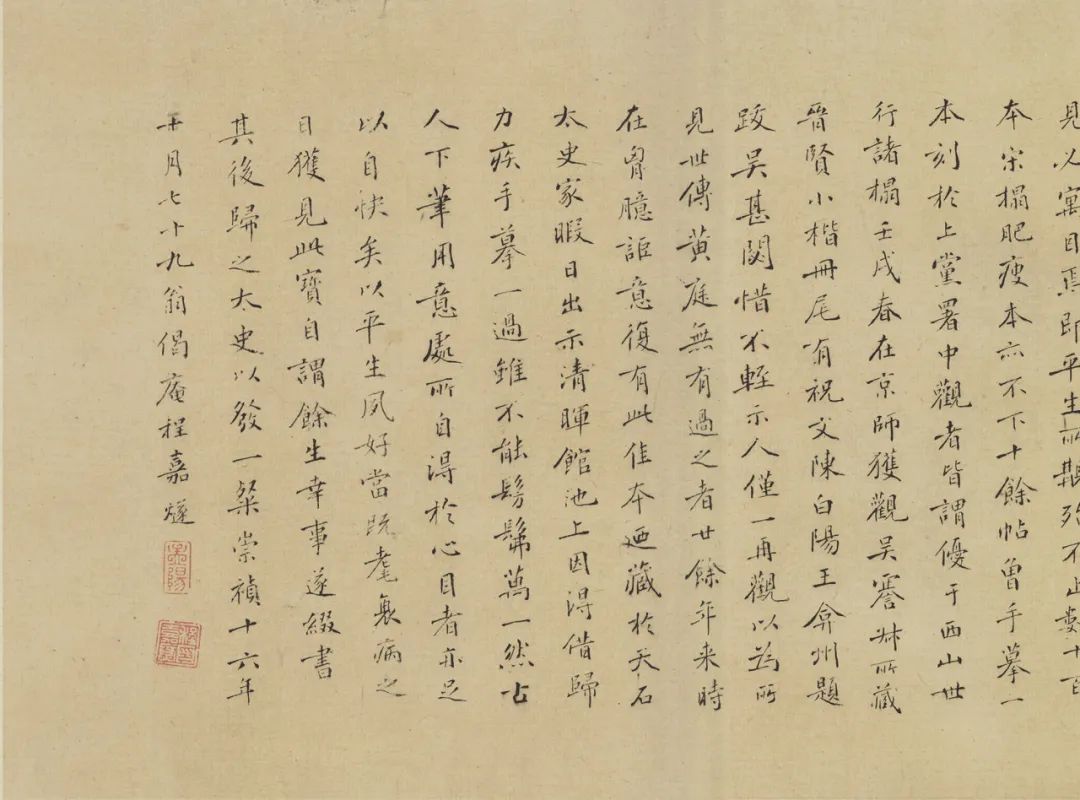 見以寓目焉即平生所覩殆不止數十百
本宋榻肥瘦本亦不下十餘帖曾手摹一
本刻於上黨署中觀者皆謂優于西山世
行諸榻壬戌春在京師獲觀吳謇叔所藏
晉賢小楷冊尾有祝文陳白陽王弇州題
跋吳甚閟惜不輕示人僅一再觀以為所
見世傳黃庭無有過之者廿餘年来時
在胷臆詎意復有此佳本迺藏於天石
太史家暇日出示清暉館池上因得借歸
力疾手摹一過雖不能髣髴萬一然古
人下筆用意處所自得於心目者亦足
以自快矣以平生夙好當既耄衰病之
日獲見此寶自謂餘生幸事遂綴書
其後歸之太史以發一粲崇禎十六年
十月七十九翁偈庵程嘉燧